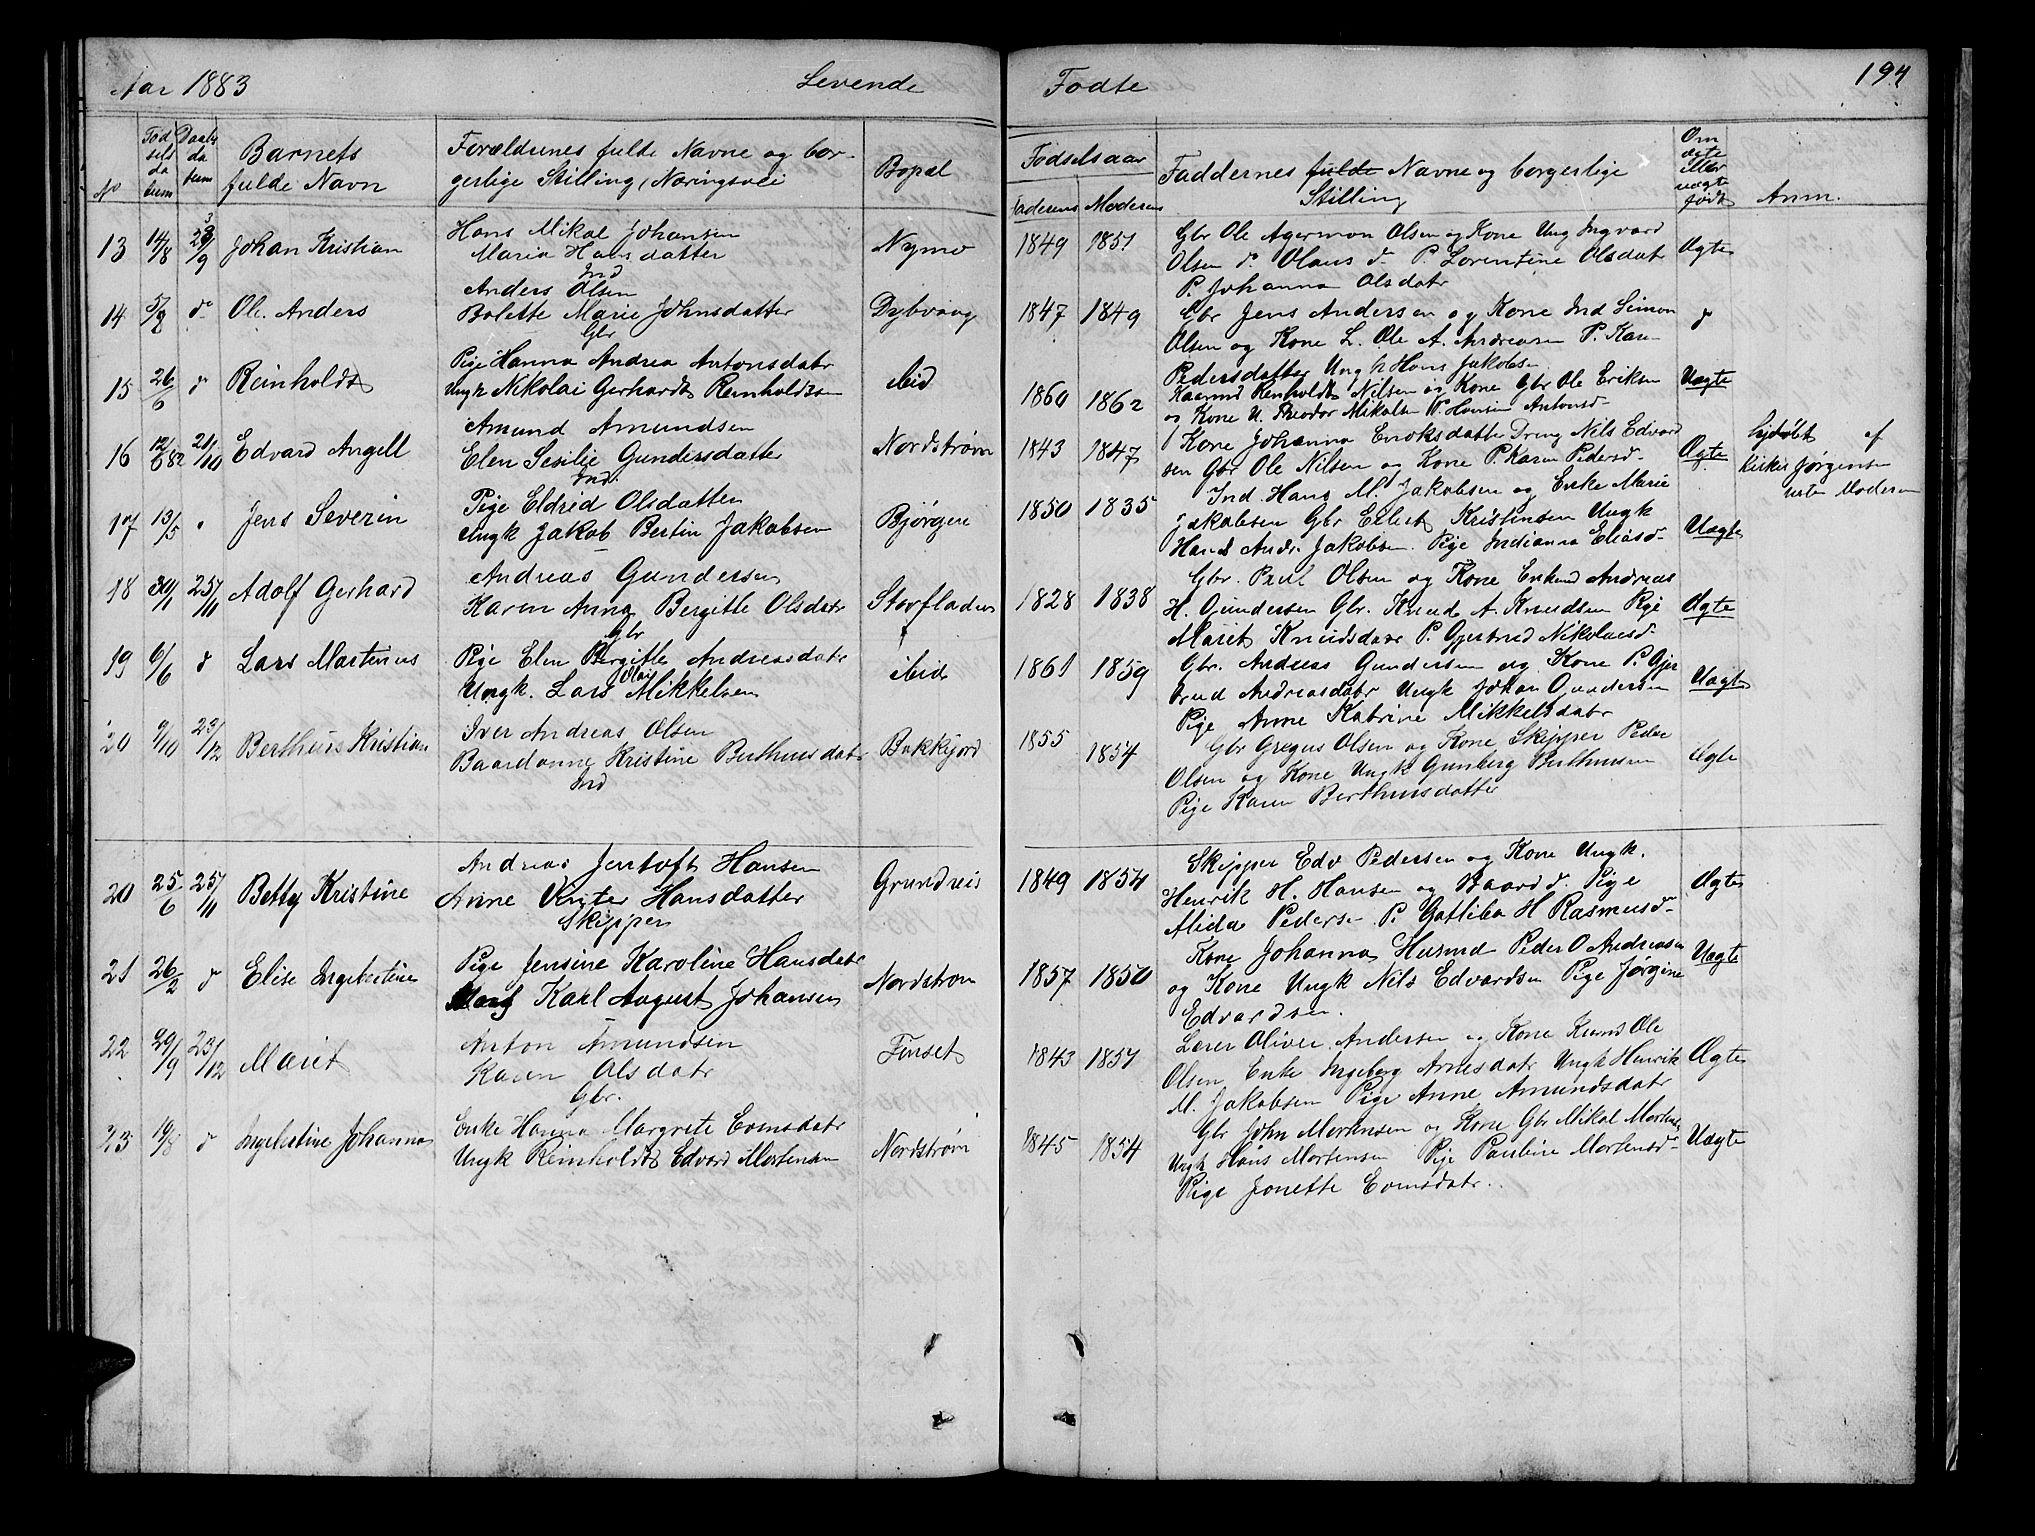 Aar 1883 Levende Fødte 194
No Fødselsdatum Daabsdatum Barnets fulde Navn Forældrenes fulde Navne og borgerlige Stilling (Næringsvei Bopæl Fødselsaar Faderens Moderens Faddernes fulde Navne og borgerlige Stilling Om ægte eller uægte født Anm.
13 14/8 23/9 Johan Kristian
Hans Mikal Johansen
Maria Hansdatter
Ind
Nymo 1849 1851
Gbr Ole Agermon Olsen og Kone Ung Ingvard
Olsen do Olaus do P. Lorentine Olsdatr
P. Johanna Olsdatr
Ægte
14 5/8 do Ole Anders
Anders Olsen
Bolette Marie Johnsdatter
Gbr
Dybvaag 1847 1849
Gbr Jens Andersen og Kone Ind Simon
Olsen og Kone L. Ole A. Andreasen P. Karen
Pedersdatter Ungk Hans Jakobsen
do
15 26/6 do Reinholdt
Pige Hanna Andrea Antonsdatr
Ungk Nikolai Gerhardt Reinholdtsen
ibid 1860 1862
Kaarmd Reinholdt Nilsen og Kone Gbr Ole Eriksen
og Kone U. Theodor Mikalsen P. Hansine Antonsd-
Uægte
16 12/6 82 21/10 Edvard Angell
Amund Amundsen
Elen Sesilie Gundersdatter
Ind.
Nordstrøm 1843 1847
Kone Johanna Enoksdatter Dreng Nils Edvard
sen Gbr Ole Nilsen og Kone P. Karen Pedersd-
Ægte
hjdøbt af
Kirkes Jørgensen
Moderen
17 13/5 Jens Severin
Pige Eldrid Olsdatter
Ungk Jakob Bertin Jakobsen
Bjørgen 1850 1835
Ind. Hans M. Jakobsen og Enke Marie
Jakobsen Gbr Eilert Kristensen Ungk
Hans Andr. Jakobsen. Pige Indianna Eliasd-
Uægte
18 30/1 25/11 Adolf Gerhard
Andreas Gundersen
Karen Anna Bergitte Olsdatr
Gbr
Storfladen 1828 1838
Gbr. Paul Olsen og Kone Enkemd Andreas
H. Gundersen Gbr. Knud A. Knudsen Pige
Maret Knudsdatr P. Gjertrud Nikolaisd-
Ægte
19 6/6 do Lars Martinus
Pige Elen Bergitte Andreasdatr
Ungk. Lars Olai Mikkelsen
ibid 1861 1859
Gbr. Andreas Gundersen og Kone P. Gjer
trud Andreasdatr Ungk Johan Gundersen
Pige Anne Katrine Mikkelsdatr
Uægte
20 9/10 23/12 Berthius Kristian
Iver Andreas Olsen
Baardanne Kristine Berthiusdatr
Ind
Bakkejord 1855 1854
Gbr Gregus Olsen og Kone Skipper Peder
Olsen og Kone Ungk Gunberg Berthiusen
Pige Karen Berthiusdatter
Ægte
20 25/6 25/11 Betty Kristine
Andreas Jentoft Hansen
Anne Hansdatter
Skipper
Grundreis 1849 1854
Skipper Edv Pedersen og Kone Ungk.
Henrik H. Hansen og Baard do. Pige
Alida Pedersen P. Gotliba H Rasmusd-
Ægte
21 26/2 do Elise Ingebertine
Pige Jensine Karoline Hansdatr
Karl August Johansen
Nordstrøm 1857 1850
Kone Johanna Husmd Peder O Andreasen
og Kone Ungk Nils Edvardsen Pige Jørgine
Edvardsen.
Uægte
22 29/9 23/12 Maret
Anton Amundsen
Karen Olsdatr
Gbr.
Finset 1843 1857
Lærer Oliver Andersen og Kone Kirkes Ole
Olsen Enke Ingeberg Arnesdatr Ungk Henrik
M. Jakobsen Pige Anne Amundsdatr
Ægte
23 19/8 do Ingebertine Johanna
Enke Hanna Margrete Eomsdatr
Ungk Reinholdt Edvard Mortensen
Nordstrøm 1845 1854
Gbr John Mortensen og Kone Gbr Mikal Mortens
Ungk Hans Mortensen Pige Pauline Mortensd-
Pige Jonette Eomsdatr.
Uægte